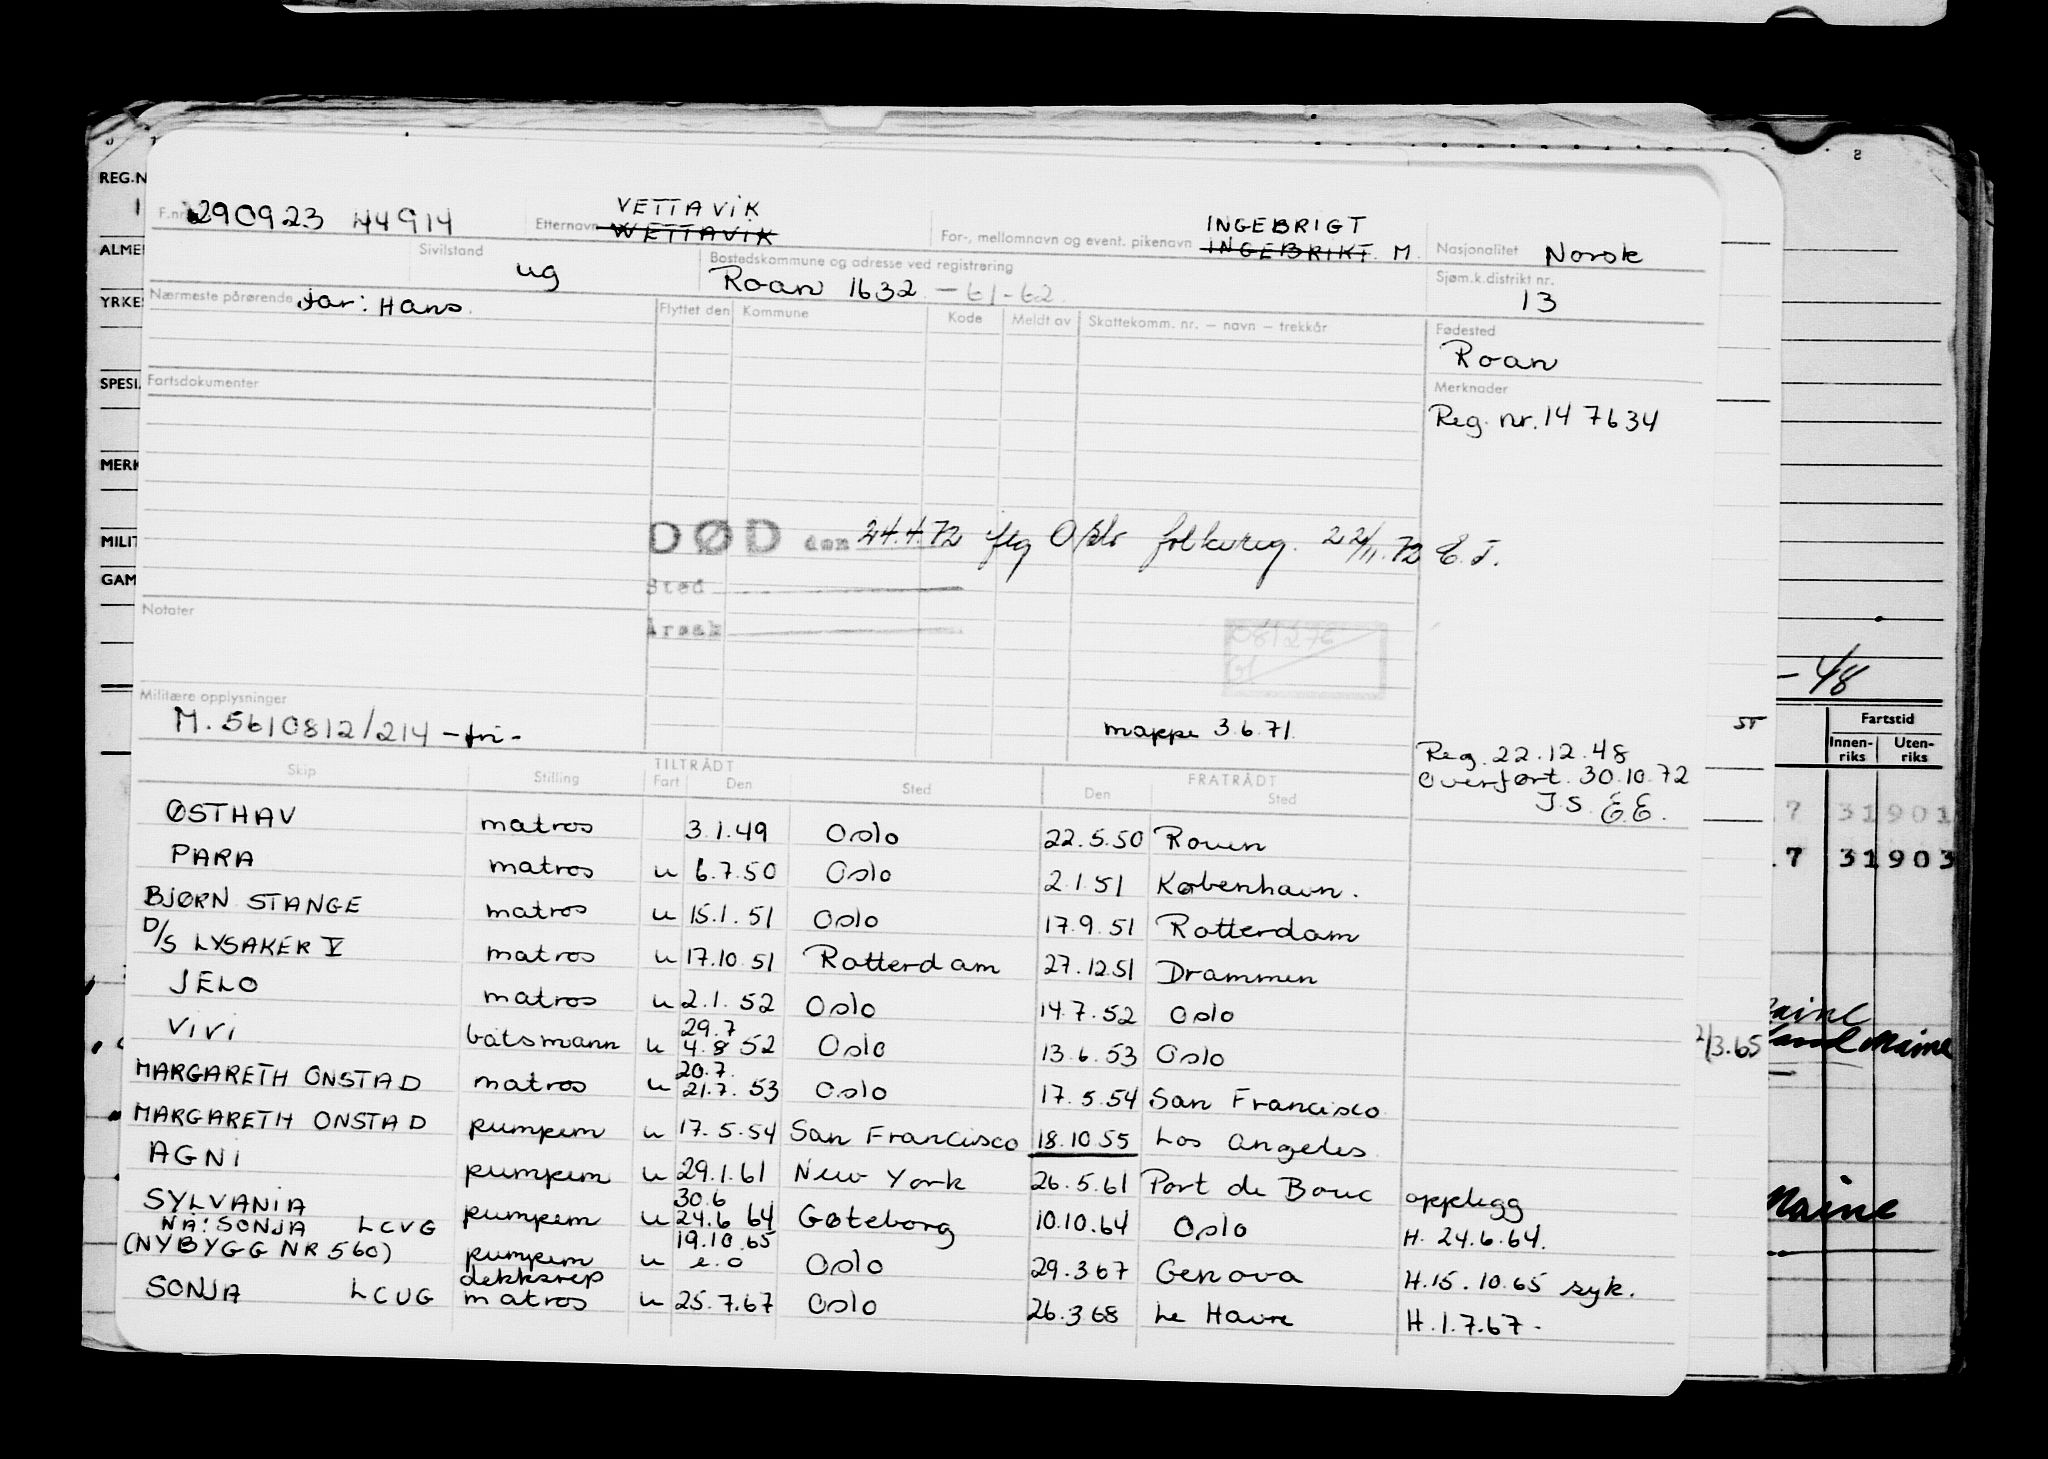 F.nr. 290923 44914 Etternavn VETTAVIK WETTAVIK For-, mellomnavn og event. pikenavn INGEBRIGT INGEBRIKT M. Nasjonalitet Norsk
Sivilstand ug Bostedskommune og adresse ved registrering Roan 1632 - 61-62 Sjøm.k.distrikt nr. 13
Nærmeste pårørende far: Hans. Flyttet den Kommune Kode Meldt av Skattekomm. nr. — navn — trekkår Fødested Roan
Fartsdokumenter Merknader
Reg. nr. 147634
DØD den 24.4.72 flg Oslo folkereg. 22/11.72 E.J.
Sted
Årsak
Notater
081276
Militære opplysninger
M. 5610812/214 - fri -
mappe 3.6.71.
Reg. 22.12.48
Overført. 30.10.72
J.S. E.E.
Skip Stilling TILTRÅDT Fart Den Sted FRATRÅDT Den Sted
ØSTHAV matros 3.1.49 Oslo 22.5.50 Rouen
PARA matros u 6.7.50 Oslo 2.1.51 København.
BJØRN STANGE matros u 15.1.51 Oslo 17.9.51 Rotterdam
D/S LYSAKER V matros u 17.10.51 Rotterdam 27.12.51 Drammen
JELO matros u 2.1.52 Oslo 14.7.52 Oslo
VIVI båtsmann u 29.7 4.8 52 Oslo 13.6.53 Oslo
MARGARETH ONSTAD matros u 20.7. 21.7. 53 Oslo 17.5.54 San Francisco
MARGARETH ONSTAD pumpem u 17.5.54 San Francisco 18.10.55 Los Angeles
AGNI pumpem u 29.1.61 New York 26.5.61 Port de Bouc opplegg
SYLVANIA pumpem u 30.6 24.6 64 Gøteborg 10.10.64 Oslo H. 24.6.64.
NÅ: SONJA LCVG
(NYBYGG NR 560) pumpem u 19.10.65 e.o Oslo 29.3 67 Genova H.15.10.65 syk.
SONJA LCUG dekksrep matros u 25.7.67 Oslo 26.3 68 Le Havre H.1.7.67.
REG.N
ALME
YRKE
SPESI
MERK
MILIT
GAM
8
- 48
ST
Fartstid
Innen-riks Uten-riks
7 31901
.7 31903
2/3.65
Maine